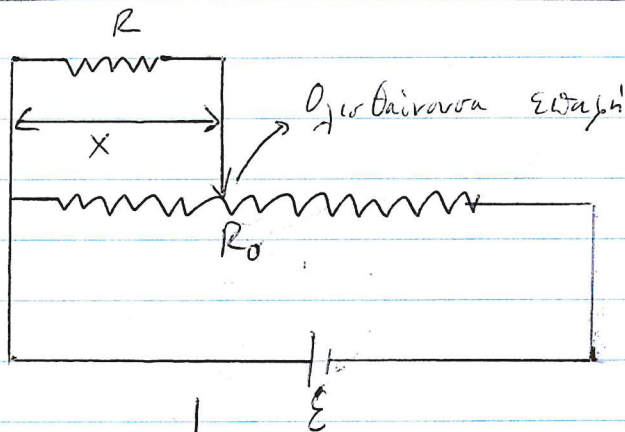 R
Ολισθαίνουσα επαφή
X
R₀
ε